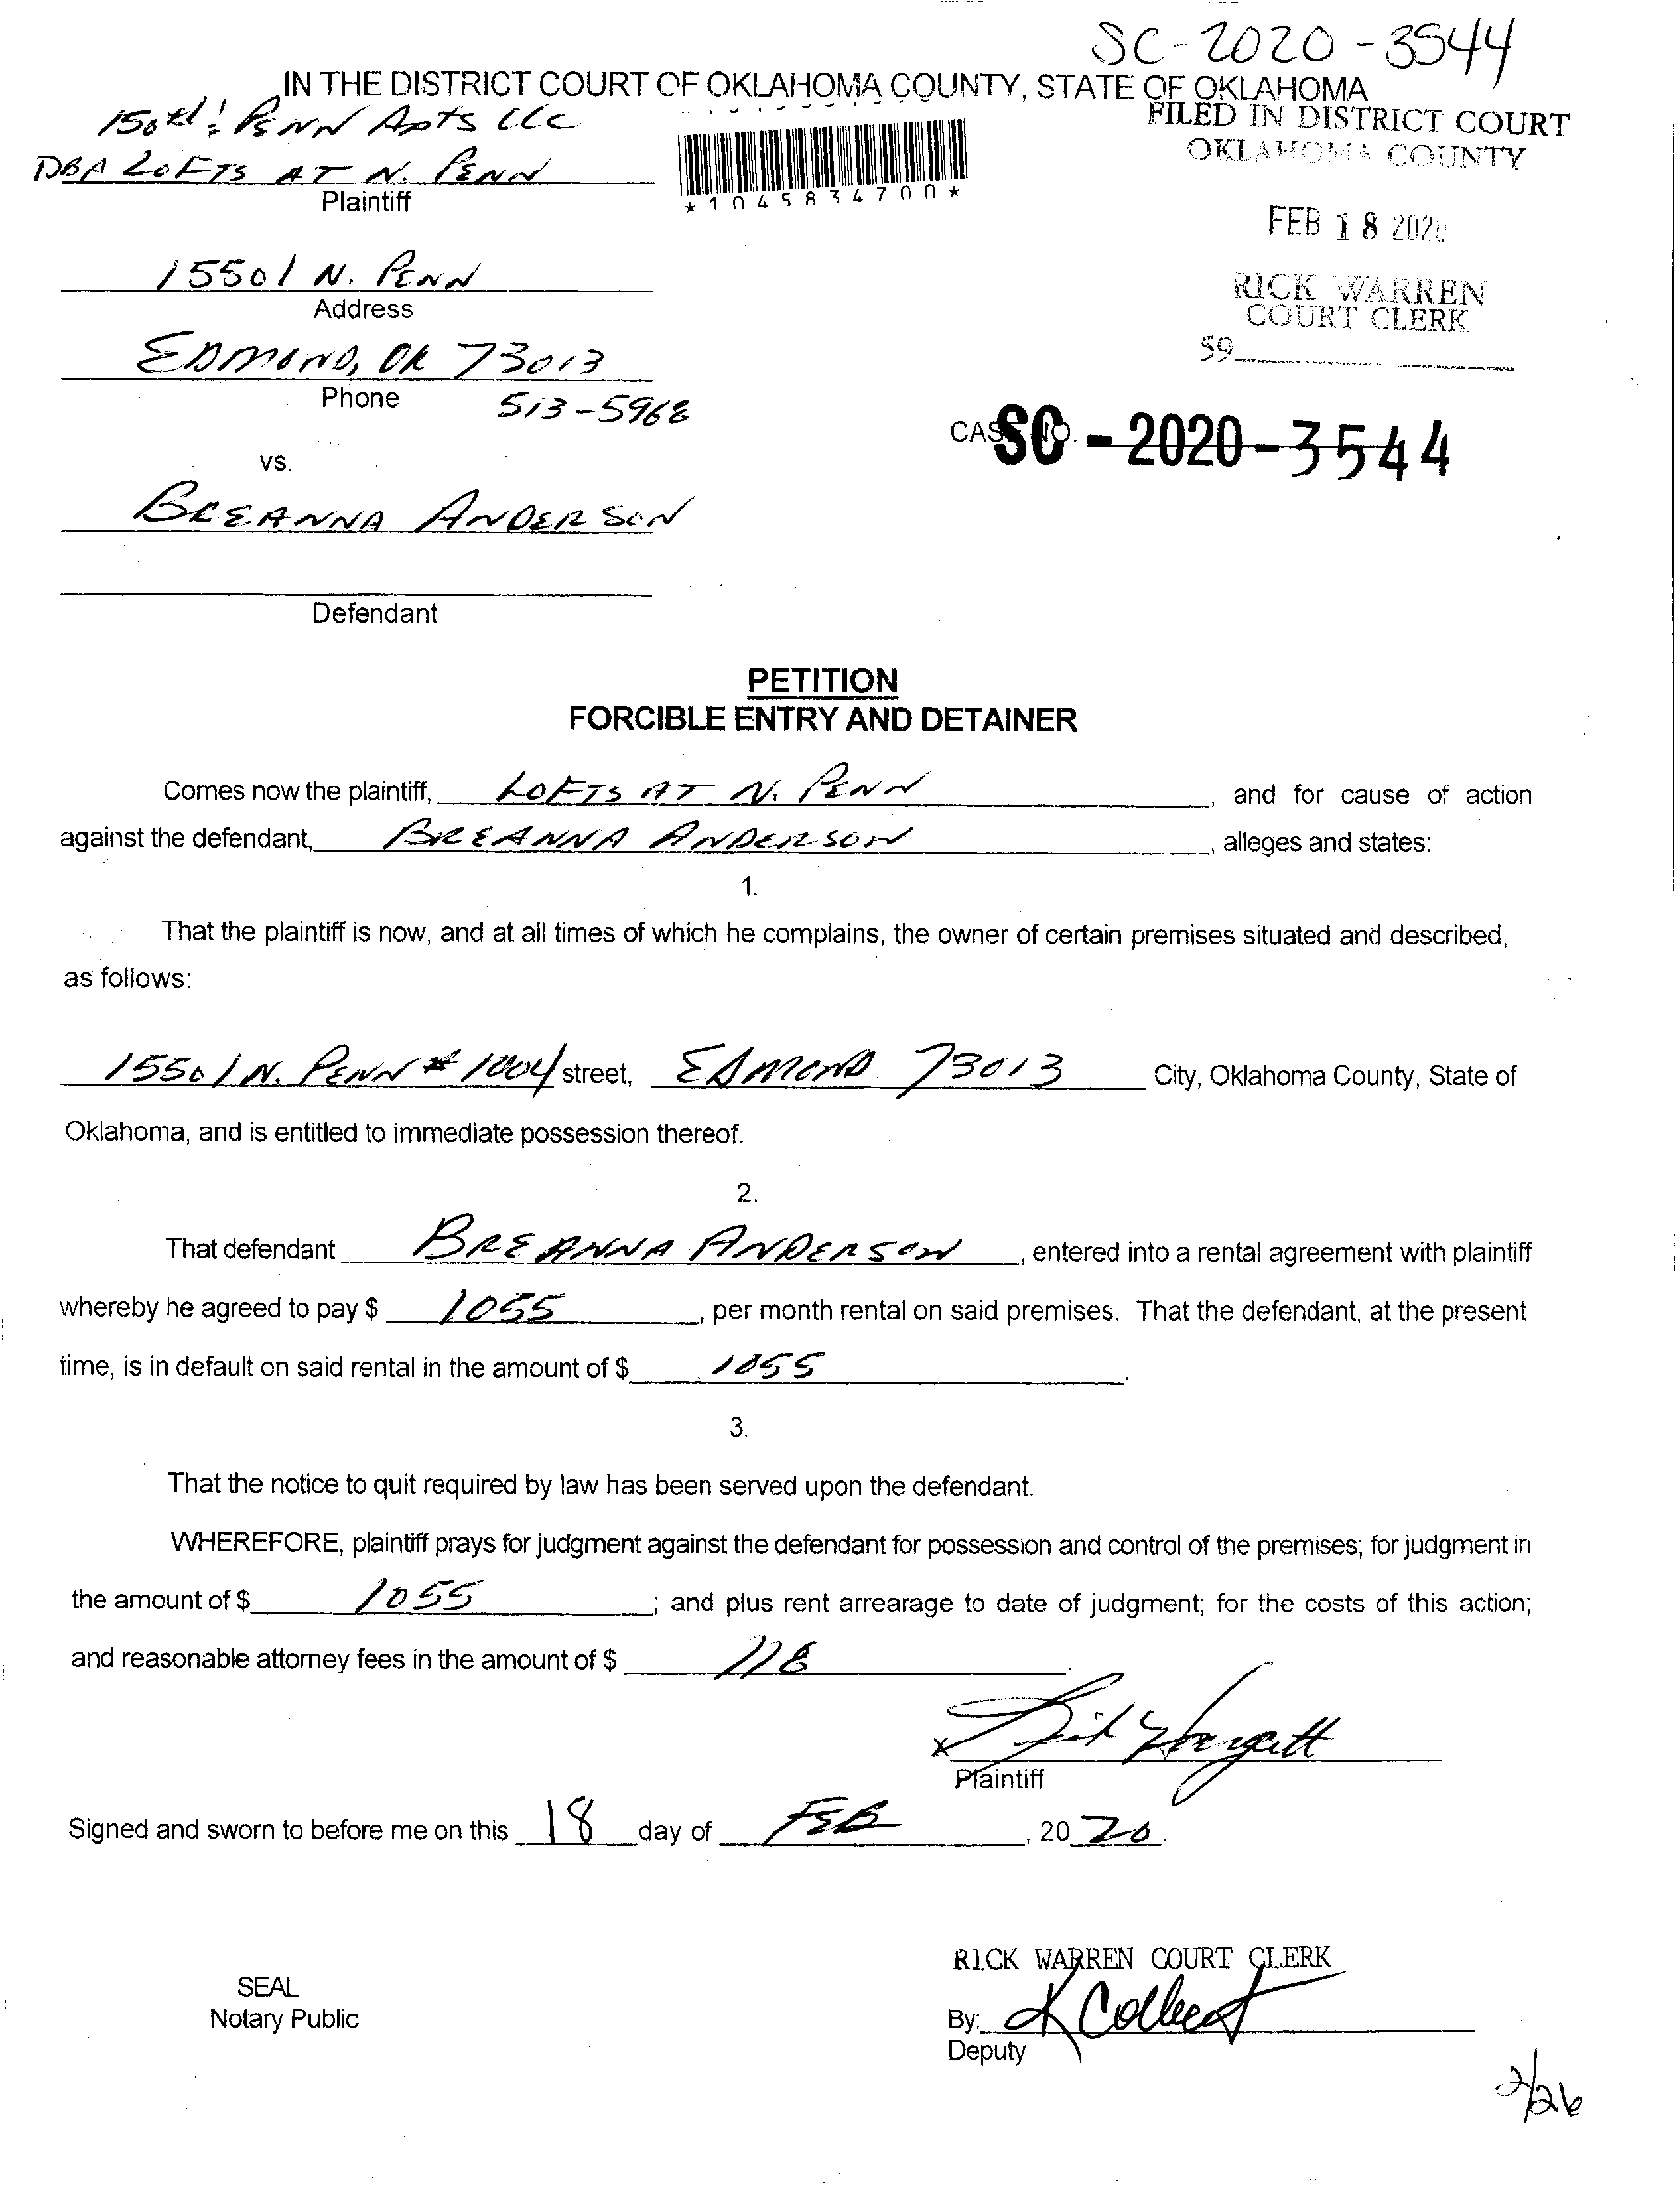 SC-2020-3544
IN THE DISTRICT COURT OF OKLAHOMA COUNTY, STATE OF OKLAHOMA
150th & PENN Apts LLC
DBA LOFTS AT N. PENN
Plaintiff
*1045834700*
FILED IN DISTRICT COURT
OKLAHOMA COUNTY
FEB 18 2020
RICK WARREN
COURT CLERK
59
15501 N. PENN
Address
EDMOND, OK 73013
Phone 513-5968
CASE NO. SC-2020-3544
vs.
BREANNA ANDERSON
Defendant
PETITION
FORCIBLE ENTRY AND DETAINER
Comes now the plaintiff, LOFTS AT N. PENN, and for cause of action
against the defendant, BREANNA ANDERSON, alleges and states:
1.
That the plaintiff is now, and at all times of which he complains, the owner of certain premises situated and described,
as follows:
15501 N. PENN # 1004 street, EDMOND 73013 City, Oklahoma County, State of
Oklahoma, and is entitled to immediate possession thereof.
2.
That defendant BREANNA ANDERSON, entered into a rental agreement with plaintiff
whereby he agreed to pay $ 1055, per month rental on said premises. That the defendant, at the present
time, is in default on said rental in the amount of $ 1055.
3.
That the notice to quit required by law has been served upon the defendant.
WHEREFORE, plaintiff prays for judgment against the defendant for possession and control of the premises; for judgment in
the amount of $ 1055; and plus rent arrearage to date of judgment; for the costs of this action;
and reasonable attorney fees in the amount of $ 118
x
Plaintiff
Signed and sworn to before me on this 18 day of FEB, 2020.
RICK WARREN COURT CLERK
SEAL
Notary Public
By: K Colbert
Deputy
2/26